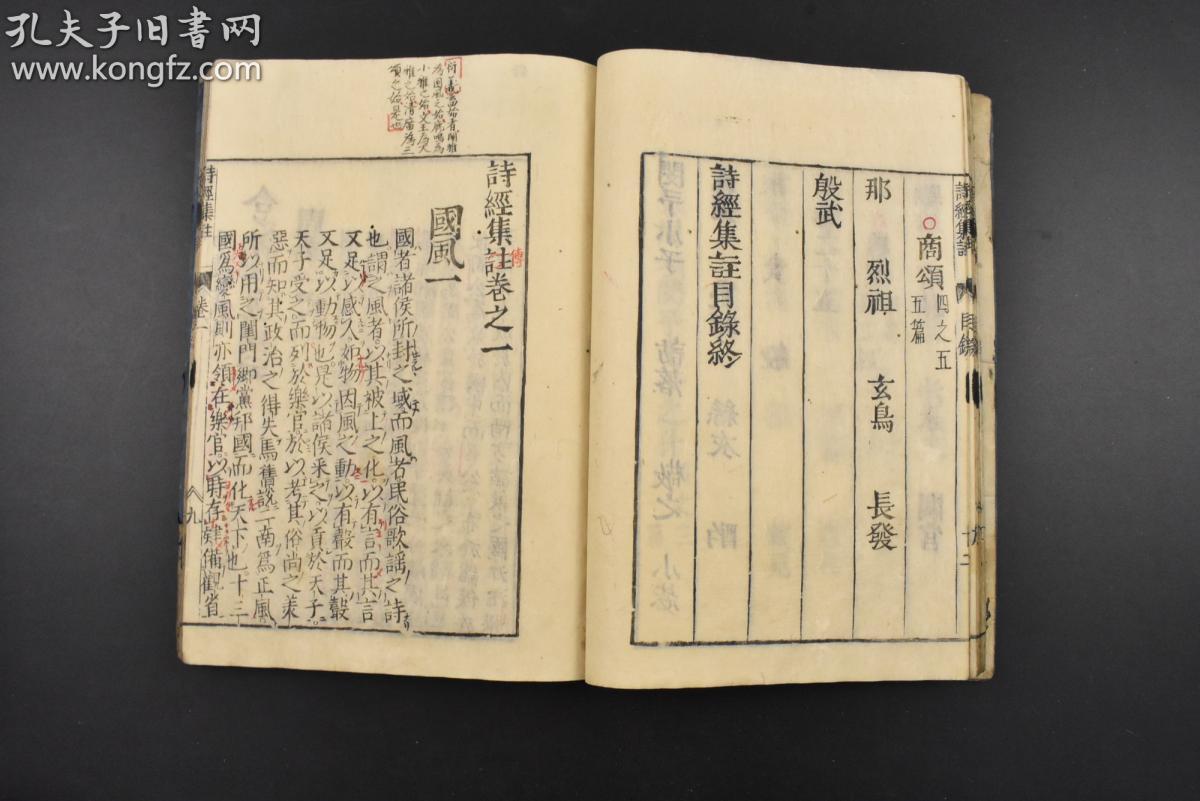 孔夫子旧书网
www.kongfz.com
詩經集註 目錄 十二
商頌 四之五 五篇
那 烈祖 玄鳥 長發
殷武
詩經集註目錄終
為國風之始鹿鳴為
小雅之始文王為大
雅之始清廟為
頌之始是也
詩經集註卷之一
傳
國風一
國者諸侯所封之域而風者民俗歌謠之詩
也謂之風者以其被上之化以有言而其言
又足以感人如物因風之動以有聲而其聲
又足以動物也是以諸侯采之以貢於天子
天子受之而列於樂官於以考其俗尚之美
惡而知其政治之得失焉舊說二南爲正風
所以用之閨門鄉黨邦國而化天下也十三
國爲變風則亦領在樂官以時存肄備觀省
詩經集註 卷一 九